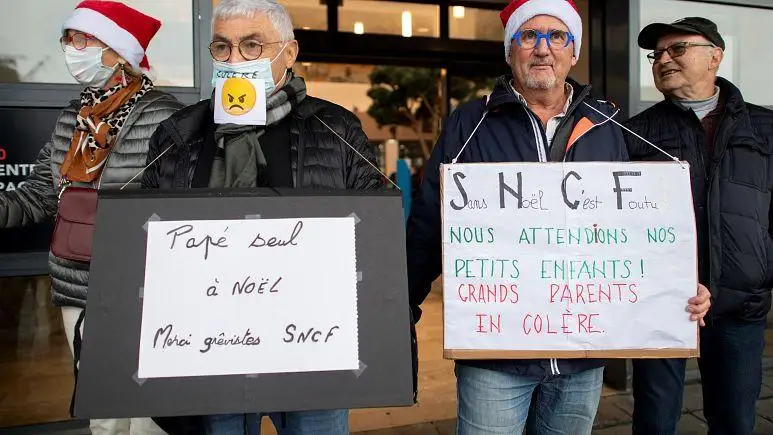 COLÈRE
Papé seul
à NOËL
Merci grêvistes SNCF
Sans Noël C'est Foutu
NOUS ATTENDiONS NOS
PETITS ENFANTS !
GRANDS PARENTS
IN COLÈRE.